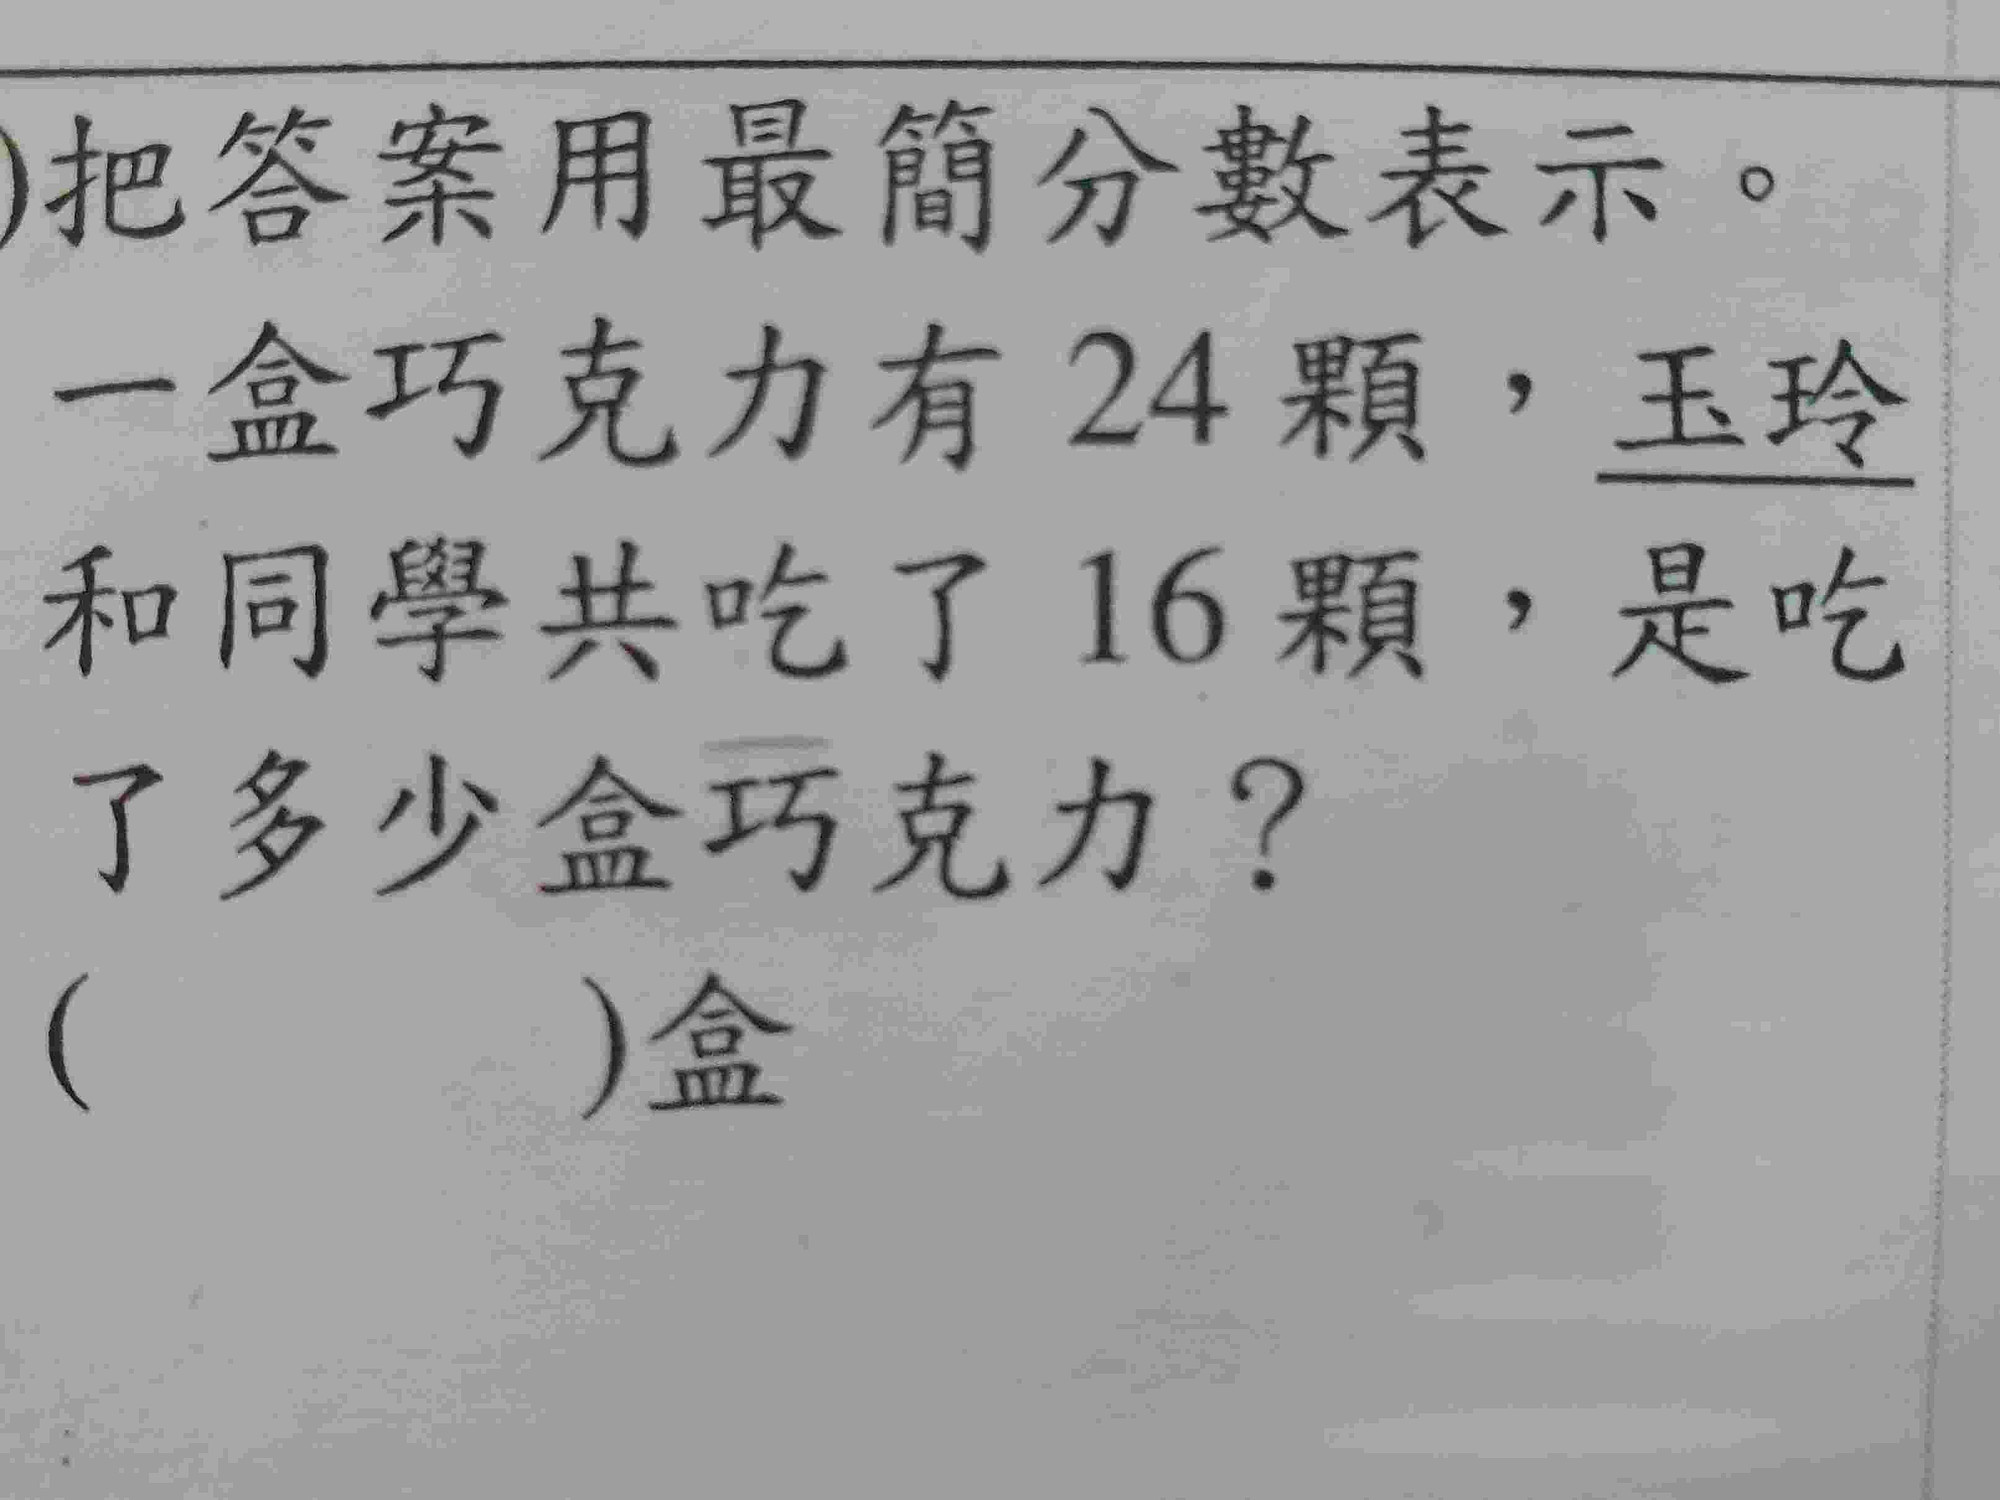 )把答案用最簡分數表示。
一盒巧克力有 24 顆，玉玲
和同學共吃了 16 顆，是吃
了多少盒巧克力？
(　　　)盒